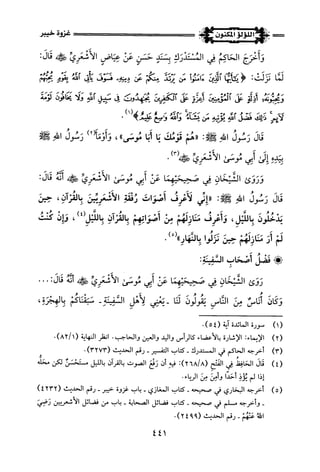 اللؤلؤ المكنون
غزوة خيبر
وَأَخْرَجَ الحَاكِمُ فِي المُسْتَدْرَكِ بِسَنَدٍ حَسَنٍ عَنْ عِيَاضٍ الأَشْعَرِيِّ ﷺ قَالَ:
لَمَّا نَزَلَتْ: ﴿ يَٰٓأَيُّهَا ٱلَّذِينَ ءَامَنُوا۟ مَن يَرْتَدَّ مِنكُمْ عَن دِينِهِۦ فَسَوْفَ يَأْتِى ٱللَّهُ بِقَوْمٍ يُحِبُّهُمْ
وَيُحِبُّونَهُۥٓ أَذِلَّةٍ عَلَى ٱلْمُؤْمِنِينَ أَعِزَّةٍ عَلَى ٱلْكَٰفِرِينَ يُجَٰهِدُونَ فِى سَبِيلِ ٱللَّهِ وَلَا يَخَافُونَ لَوْمَةَ
لَآئِمٍ ذَٰلِكَ فَضْلُ ٱللَّهِ يُؤْتِيهِ مَن يَشَآءُ وَٱللَّهُ وَٰسِعٌ عَلِيمٌ ﴾(١).
قَالَ رَسُولُ اللهِ ﷺ: «هُمْ قَوْمُكَ يَا أَبَا مُوسَى»، وَأَوْمَأَ(٢) رَسُولُ اللهِ ﷺ
بِيَدِهِ إِلَى أَبِي مُوسَى الأَشْعَرِيِّ(٣).
وَرَوَى الشَّيْخَانِ فِي صَحِيحَيْهِمَا عَنْ أَبِي مُوسَى الأَشْعَرِيِّ أَنَّهُ قَالَ:
قَالَ رَسُولُ اللهِ ﷺ: «إِنِّي لَأَعْرِفُ أَصْوَاتَ رُفْقَةِ الأَشْعَرِيِّينَ بِالقُرْآنِ، حِينَ
يَدْخُلُونَ بِاللَّيْلِ، وَأَعْرِفُ مَنَازِلَهُمْ مِنْ أَصْوَاتِهِمْ بِالقُرْآنِ بِاللَّيْلِ(٤)، وَإِنْ كُنْتُ
لَمْ أَرَ مَنَازِلَهُمْ حِينَ نَزَلُوا بِالنَّهَارِ»(٥).
فَضْلُ أَصْحَابِ السَّفِينَةِ:
رَوَى الشَّيْخَانِ فِي صَحِيحَيْهِمَا عَنْ أَبِي مُوسَى الأَشْعَرِيِّ أَنَّهُ قَالَ:...
وَكَانَ أُنَاسٌ مِنَ النَّاسِ يَقُولُونَ لَنَا -يَعْنِي لِأَهْلِ السَّفِينَةِ- سَبَقْنَاكُمْ بِالهِجْرَةِ،
(١) سورة المائدة آية (٥٤).
(٢) الإيماء: الإشارة بالأعضاء كالرأس واليد والعين والحاجب. انظر النهاية (٨٢/١).
(٣) أخرجه الحاكم في المستدرك - كتاب التفسير - رقم الحديث (٣٢٧٣).
(٤) قَالَ الحَافِظُ فِي الفَتْحِ (٢٦٨/٨): فيه أن رَفْعَ الصوت بالقرآن بالليل مستَحْسَنٌ لكن محَلَّه
إذا لم يُؤْذِ أحَدًا وأمِنَ مِنَ الرياء.
(٥) أخرجه البخاري في صحيحه - كتاب المغازي - باب غزوة خيبر - رقم الحديث (٤٢٣٢)
- وأخرجه مسلم في صحيحه - كتاب فضائل الصحابة - باب من فضائل الأشعريين رَضِيَ
اللهُ عَنْهُمْ - رقم الحديث (٢٤٩٩).
٤٤١